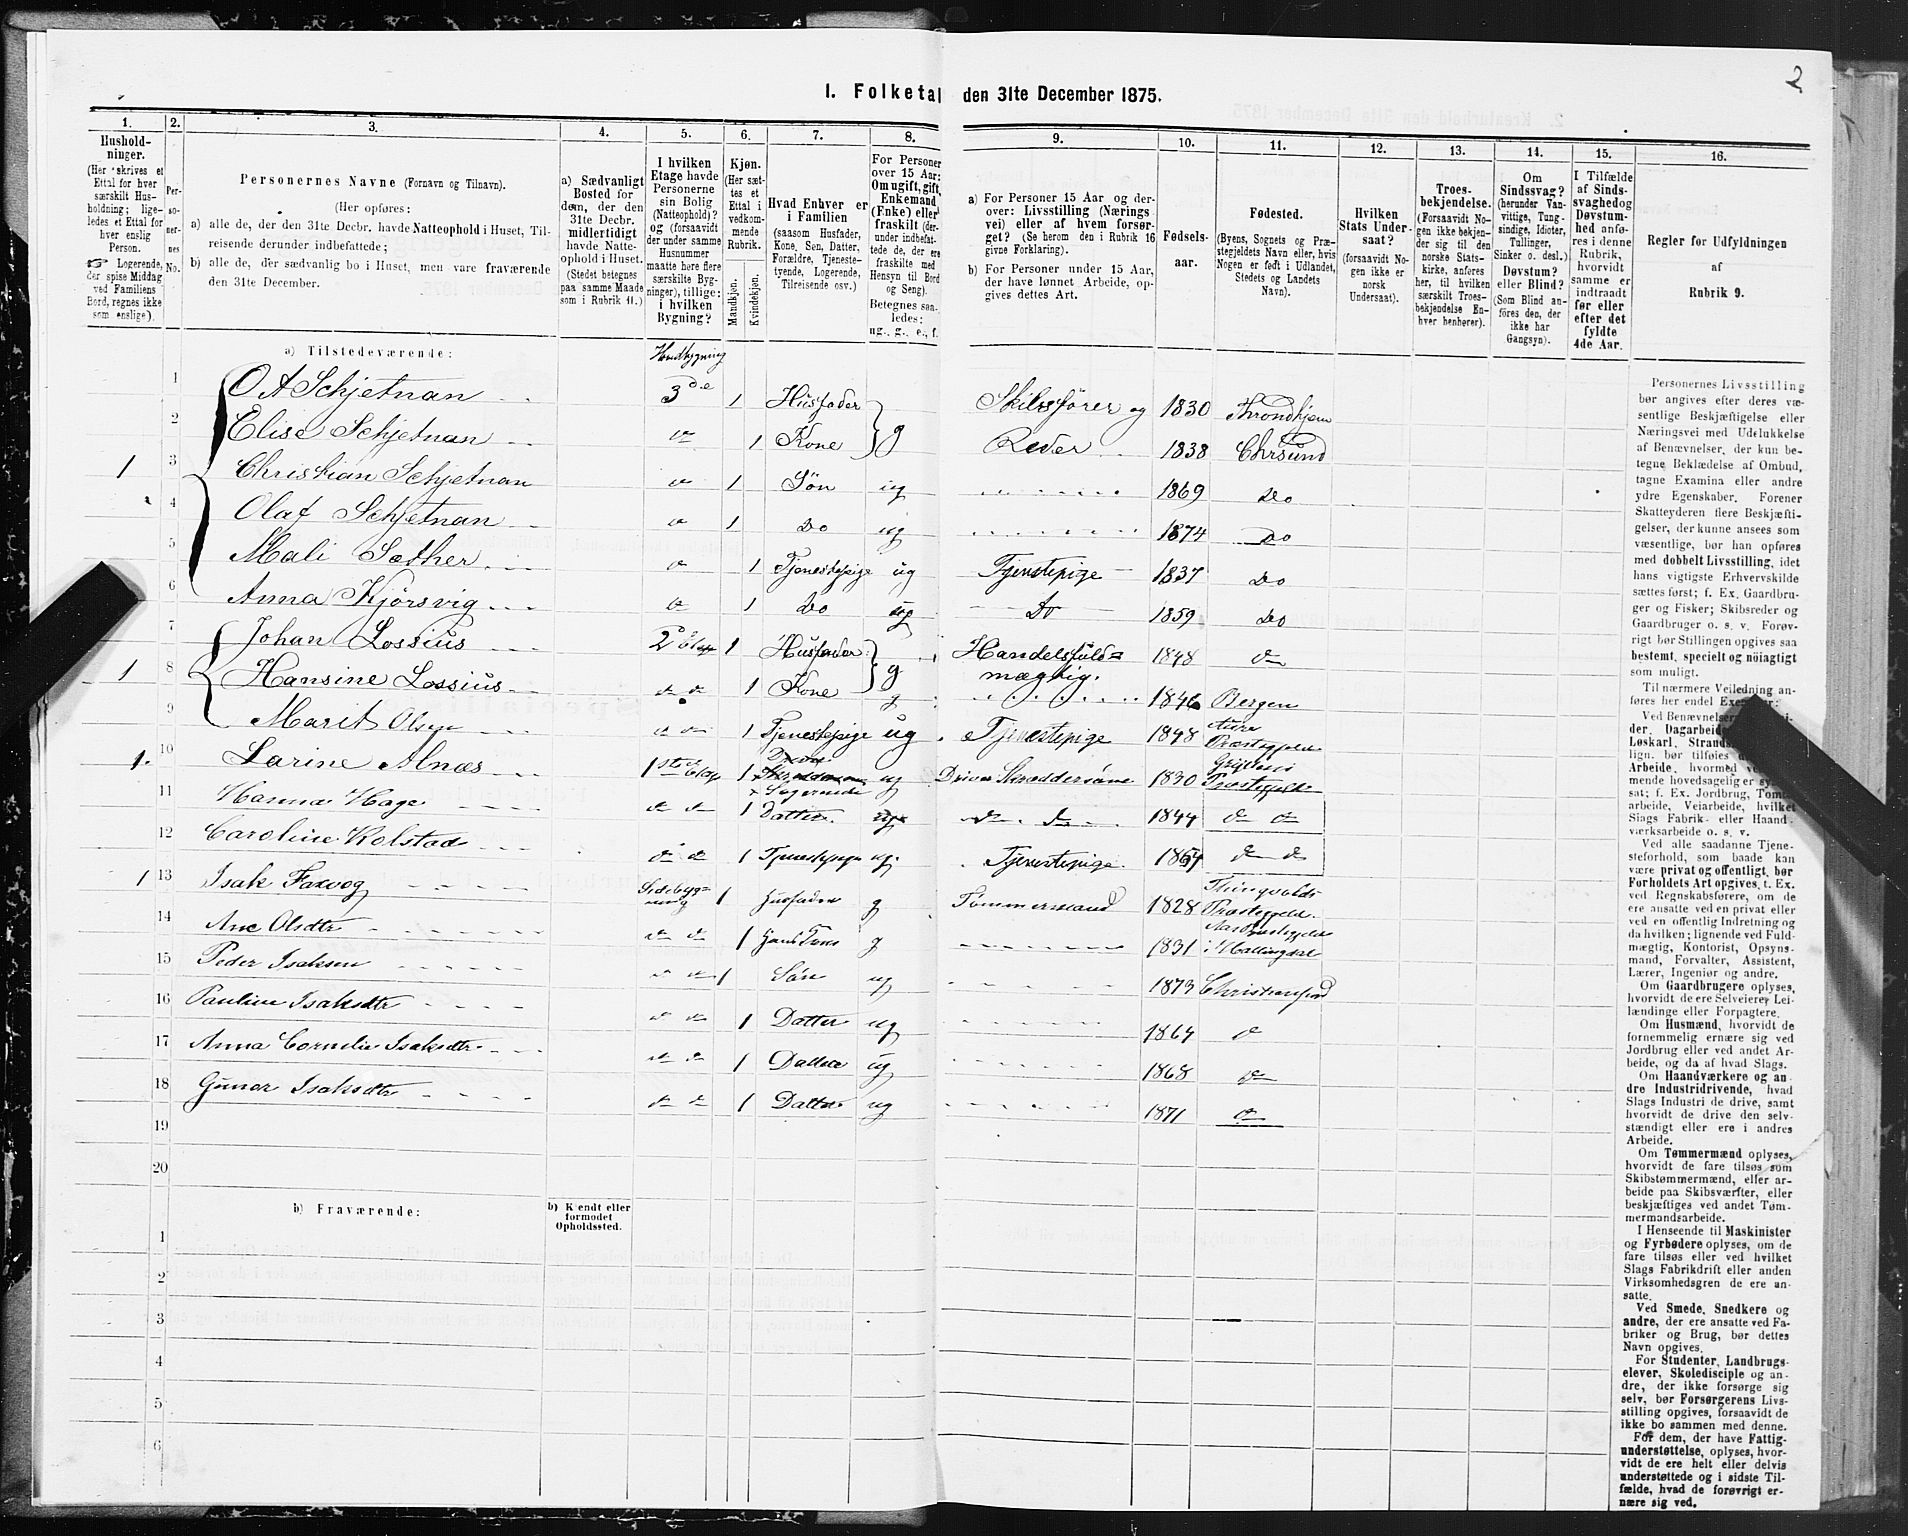 2
I. Folketal den 31te December 1875.
1. 2. 3. 4. 5. 6. 7. 8. 9. 10. 11. 12. 13. 14. 15. 16.
Hushold-
ninger.
(Her skrives et
Ettal for hver
særskilt Hus-
holdning; lige-
ledes et Ettal for
hver enslig
Person.
☞ Logerende,
der spise Middag
ved Familiens
Bord, regnes ikke
som enslige).
Per-
so-
ner-
nes
No.
Personernes Navne (Fornavn og Tilnavn).
(Her opføres:
a) alle de, der den 31te Decbr. havde Natteophold i Huset, Til-
reisende derunder indbefattede;
b) alle de, der sædvanlig bo i Huset, men vare fraværende
den 31te December.
a) Sædvanligt
Bosted for
dem, der den
31te Decbr.
midlertidigt
havde Natte-
ophold i Huset.
(Stedet betegnes
paa samme Maade
som i Rubrik 11.)
I hvilken
Etage havde
Personerne
sin Bolig
(Natteophold)?
og (forsaavidt
der under samme
Husnummer
maatte høre flere
særskilte Byg-
ninger), tillige:
i hvilken
Bygning?
Kjøn.
(Her sæt-
tes et
Ettal i
vedkom-
mende
Rubrik.
Mandkjøn.
Kvindekjøn.
Hvad Enhver er
i Familien
(saasom Husfader,
Kone, Søn, Datter,
Forældre, Tjeneste-
tyende, Logerende,
Tilreisende osv.)
For Personer
over 15 Aar:
Om ugift, gift,
Enkemand
(Enke) eller
fraskilt (der-
under indbefat-
tede de, der ere
fraskilte med
Hensyn til Bord
og Seng).
Betegnes saa-
ledes:
ug., g., e., f.
a) For Personer 15 Aar og der-
over: Livsstilling (Nærings
vei) eller af hvem forsør-
get? (Se herom den i Rubrik 16
givne Forklaring).
b) For Personer under 15 Aar,
der have lønnet Arbeide, op-
gives dettes Art.
Fødsels-
aar.
Fødested.
(Byens, Sognets og Præ-
stegjeldets Navn eller, hvis
Nogen er født i Udlandet,
Stedets og Landets
Navn).
Hvilken
Stats Under-
saat?
(forsaavidt No-
gen ikke er
norsk
Undersaat).
Troes-
bekjendelse.
(Forsaavidt No-
gen ikke bekjen-
der sig til den
norske Stats-
kirke, anføres
her, til hvilken
særskilt Troes-
bekjendelse En-
hver henhører).
Om
Sindssvag?
(herunder Van-
vittige, Tung-
sindige, Idioter,
Tullinger,
Sinker o. desl.)
Døvstum?
eller Blind?
(Som Blind an-
føres den, der
ikke har
Gangsyn).
I Tilfælde
af Sinds-
svaghed og
Døvstum-
hed anfø-
res i denne
Rubrik,
hvorvidt
samme er
indtraadt
før eller
efter det
fyldte
4de Aar.
Regler for Udfyldningen
af
Rubrik 9.
a) Tilstedeværende:
1 O A Schjetnan 3de 1 Husfader g Skibsfører og 1830 Throndhjem
2 Elise Schjetnan 1 Kone Reder 1838 Chrsund
1 3 Christian Schjetnan 1 Søn ug 1869 Do
4 Olaf Schjetnan 1 Do ug 1874 Do
5 Mali Sæther 1 Tjenestepige ug Tjenstepige 1837 Do
6 Anna Kjörsvig 1 Do ug Do 1859 Do
7 Johan Lossius 2 Etage 1 Husfader g Handelsfuld= 1848 do
mægtig.
1 8 Hansine Lossius do do 1 Kone 1846 Bergen
9 Marit Olsen do do 1 Tjenestepige ug Tjenestepige 1848 Aure
Præstegjeld
1 10 Larine Alnæs 1ste Etage 1 Logerende ug Driver 1830
Præstegjeld
11 Hanna Hage do do 1 Datter ug do do 1844 do do
12 Caroline Kolstad do do 1 Tjenestepige ug. Tjenestepige. 1854 do do
1 13 Isak Faxvog Sidebyg=
ning 1 Husfader g Tømmermand 1828 Thingvolds
Præstegjeld.
14 Ane Olsdtr do do 1 Hans Kone g 1831
i Hallingdal
15 Peder Isaksen do do 1 Søn ug 1873 Christiansund
16 Pauline Isaksdtr do do 1 Datter ug 1864 do
17 Anna Cornelie Isaksdtr do do 1 Datter ug 1868 do
18 Gunor Isaksdtr do do 1 Datter ug 1871 do
19
20
b) Fraværende:
b) Kjendt eller
formodet
Opholdssted.
1
2
3
4
5
6
Personernes Livsstilling
bør angives efter deres væ-
sentlige Beskjæftigelse eller
Næringsvei med Udelukkelse
af Benævnelser, der kun be-
tegne Beklædelse af Ombud,
tagne Examina eller andre
ydre Egenskaber. Forener
Skatteyderen flere Beskjæfti-
gelser, der kunne ansees som
væsentlige, bør han opføres
med dobbelt Livsstilling, idet
hans vigtigste Erhvervskilde
sættes først; f. Ex. Gaardbru-
ger og Fisker; Skibsreder og
Gaardbruger o. s. v. Forøv-
rigt bør Stillingen opgives saa
bestemt, specielt og nøiagtigt
som muligt.
Til nærmere Veiledning an-
føres her endel
Ved
der. Dagarbeide
Løskarl,
lign. bør tilføies
Arbeide, hvormed
mende hovedsagelig er
sat; f. Ex. Jordbrug, Tomt
arbeide, Veiarbeide, hvilket
Slags Fabrik- eller Haand-
værksarbeide o. s. v.
Ved alle saadanne Tjene-
steforhold, som baade kan
være privat og offentligt, bør
Forholdets Art opgives, t. Ex.
ved Regnskabsførere, om de
ere ansatte ved en privat eller
ved en offentlig Indretning og
da hvilken; lignende ved Fuld-
mægtig, Kontorist, Opsyns-
mand, Forvalter, Assistent,
Lærer, Ingeniør og andre.
Om Gaardbrugere oplyses,
hvorvidt de ere Selveiere, Lei-
lændinge eller Forpagtere.
Om Husmænd, hvorvidt de
fornemmelig ernære sig ved
Jordbrug eller ved andet Ar-
beide, og da af hvad Slags.
Om Haandværkere og an-
dre Industridrivende, hvad
Slags Industri de drive, samt
hvorvidt de drive den selv-
stændigt eller ere i andres
Arbeide.
Om Tømmermænd oplyses,
hvorvidt de fare tilsøs som
Skibstømmermænd, eller ar-
beide paa Skibsværfter, eller
beskjæftiges ved andet Tøm-
mermandsarbeide.
I Henseende til Maskinister
og Fyrbødere oplyses, om de
fare tilsøs eller ved hvilket
Slags Fabrikdrift eller anden
Virksomhedsgren de ere an-
satte.
Ved Smede, Snedkere og
andre, der ere ansatte ved Fa-
briker og Brug, bør dettes
Navn opgives.
For Studenter, Landbrugs-
elever, Skoledisciple og an-
dre, der ikke forsørge sig
selv, bør Forsørgerens Livs-
stilling opgives, forsaavidt de
ikke bo sammen med denne.
For dem, der have Fattig-
understøttelse, oplyses, hvor-
vidt de ere helt eller delvis
understøttede og i sidste Til-
fælde, hvad de forøvrigt er-
nære sig ved.